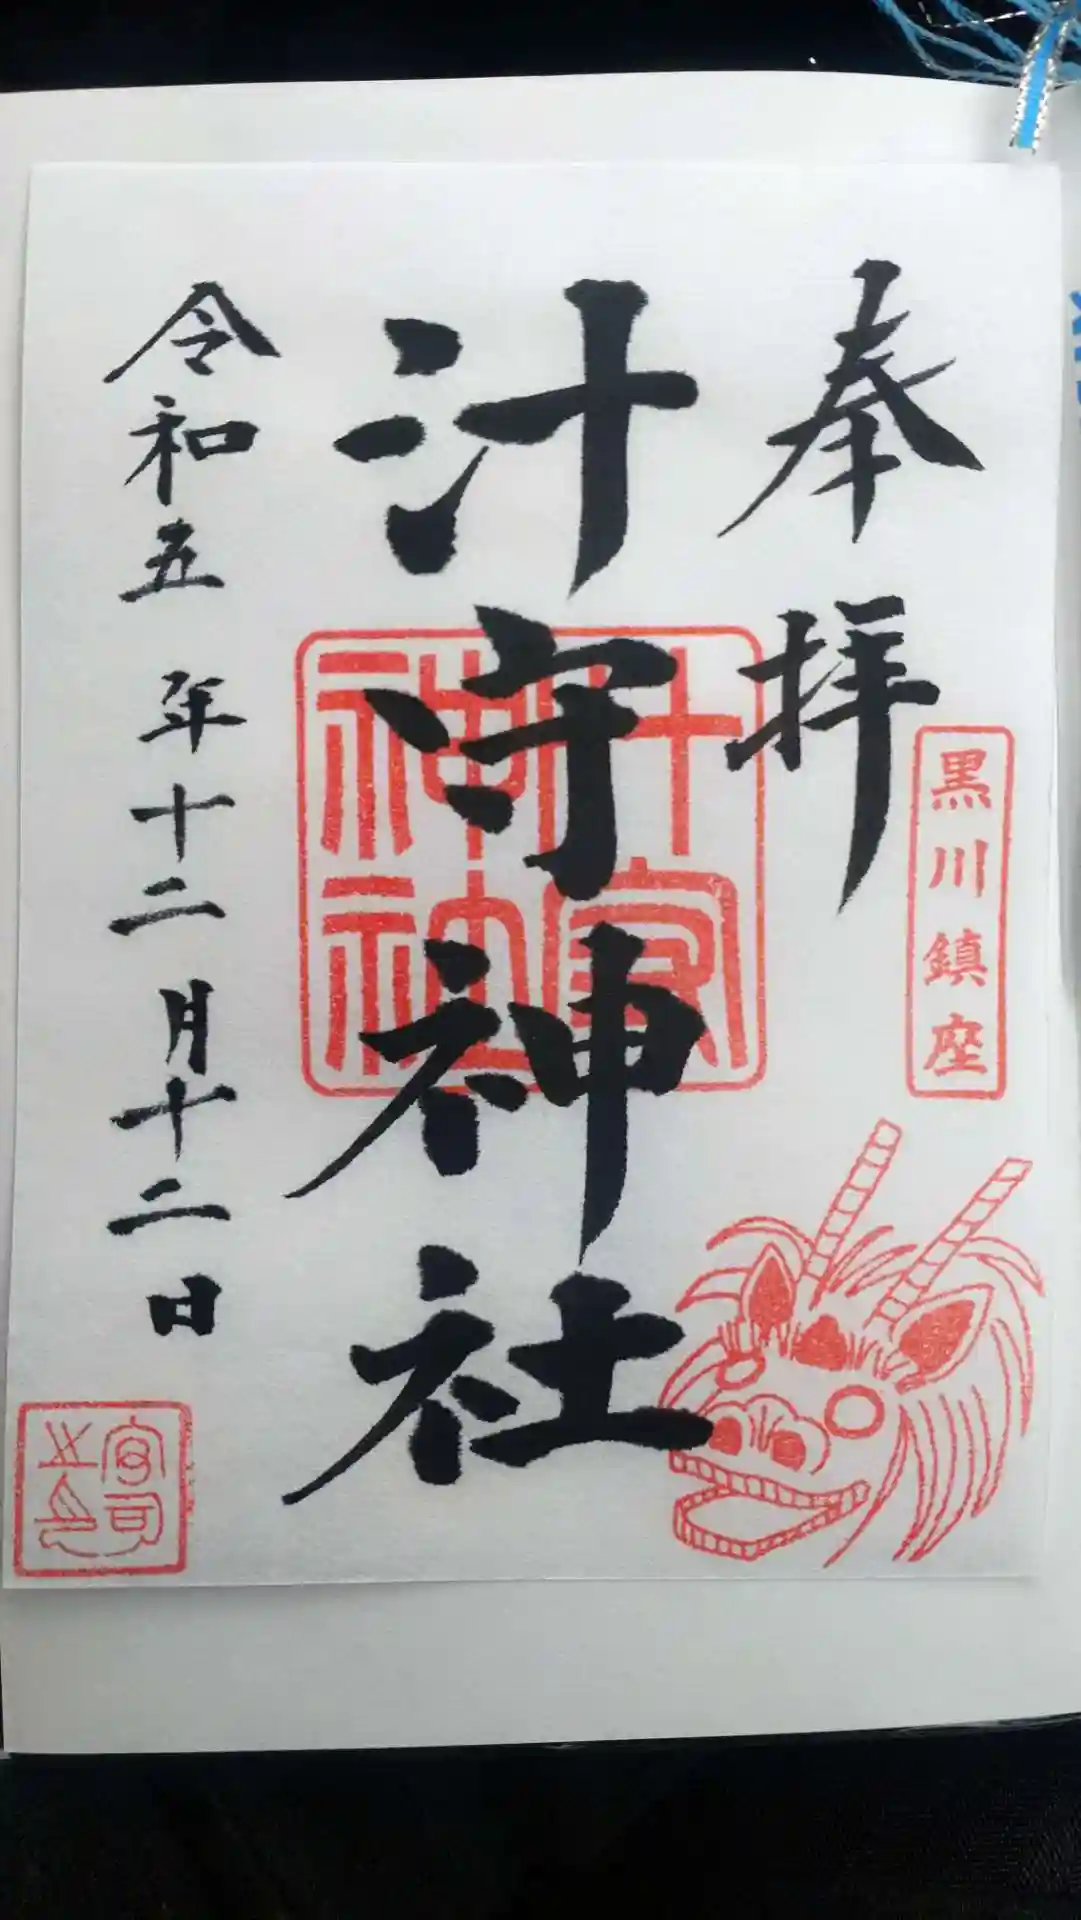 奉拝
黒川鎮座
汁守神社
汁守神社
令和五年十二月十二日
宮司之印